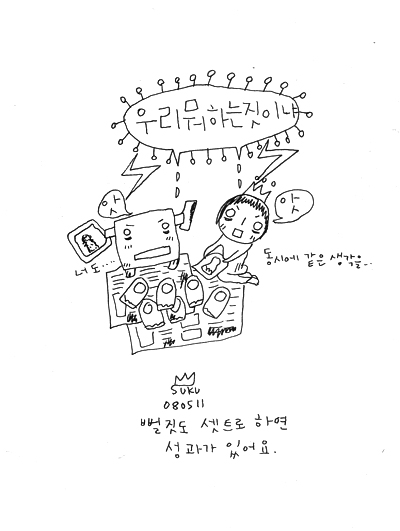 우리뭐하는짓이냐
앗
앗
너도....
동시에 같은 생각을...
SUKU
080511
뻘짓도 셋트로 하면
성과가 있어요.